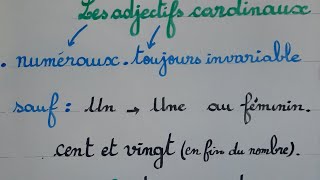 Les adjectifs cardinaux
. numéraux . toujours invariable
sauf : Un → Une au féminin.
cent et vingt (en fin du nombre).